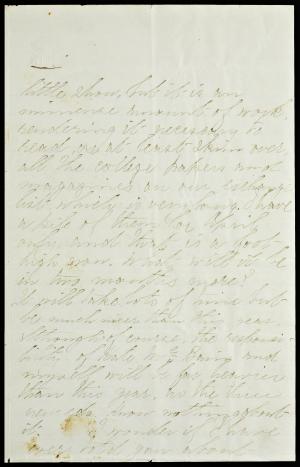 little show, but it is an
immense amount of work,
rendering it necessary to
read, or at least skim over,
all the college papers and
magazines on our exchange
list which is very long. I have
a pile of them for April
only and that is a foot
high now. What will it be
in two months more?
It will take lots of time but
be much nicer than this year.
Although of course, the responsi-
bility of and
myself will be far heavier
than this year, as the three
new eds. know nothing about
it. I wonder if I have
ever told you about